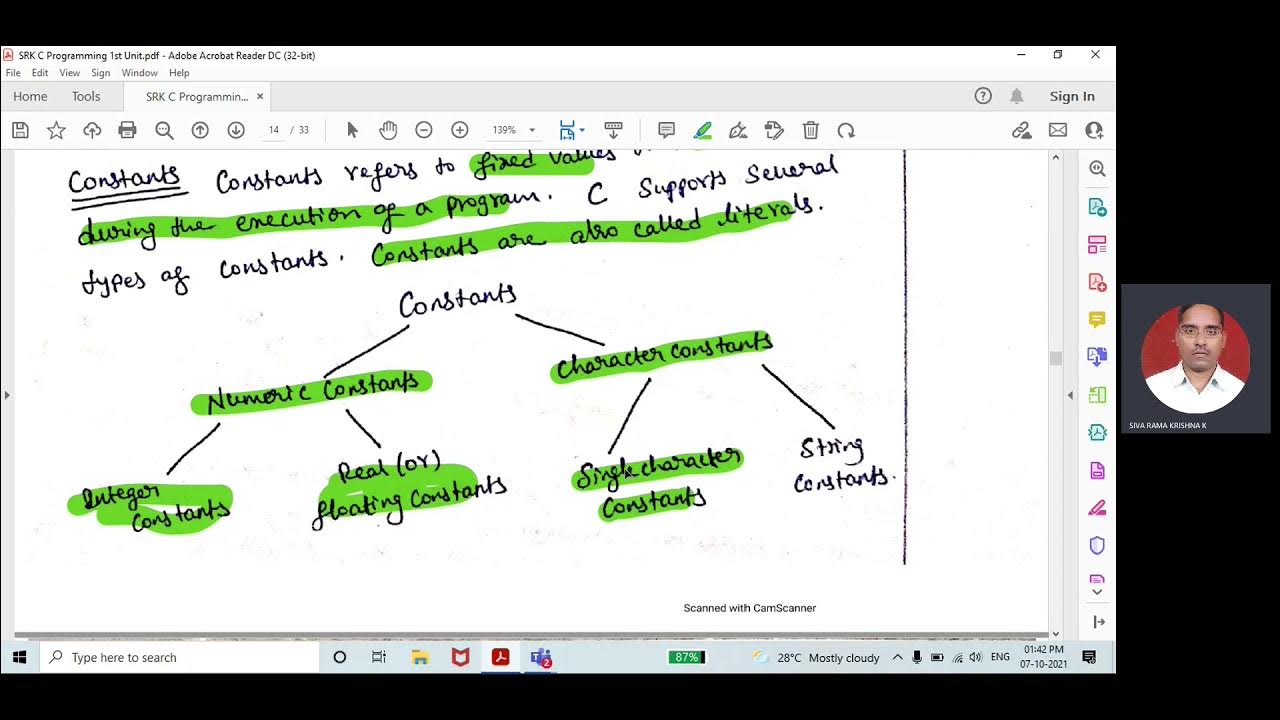 SRK C Programming 1st Unit.pdf - Adobe Acrobat Reader DC (32-bit)
File Edit View Sign Window Help
Home Tools SRK C Programmin... × Sign In
14 / 33 139%
Constants Constants refers to fixed values
during the execution of a program. C supports several
types of constants. Constants are also called literals.
Constants
Numeric Constants
Character constants
Integer
constants
Real (or)
floating constants
Single character
constants
String
constants.
Scanned with CamScanner
SIVA RAMA KRISHNA K
Type here to search
87%
28°C Mostly cloudy
ENG
01:42 PM
07-10-2021
2